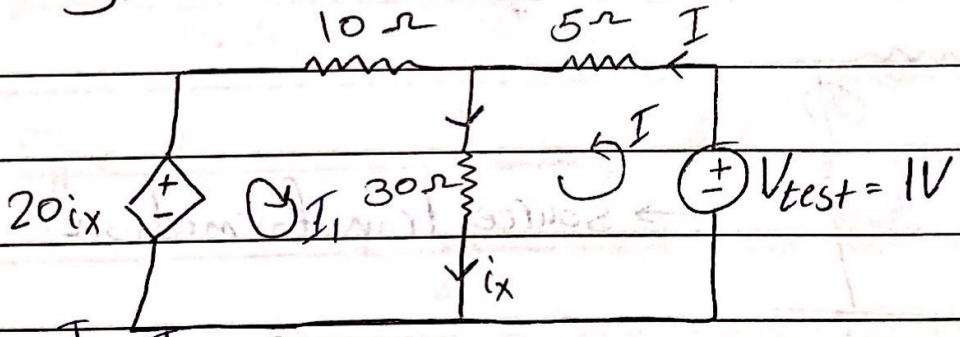 10 Ω 5Ω I
I
20ix + - I₁ 30Ω + - Vtest = 1V
ix